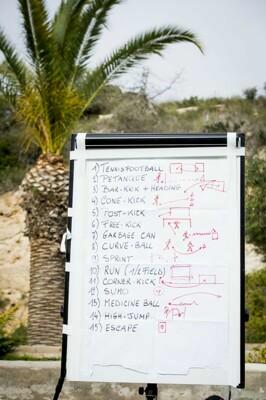 1) TENNISFOOTBALL
2) PETANQUE
3) BAR-KICK + HEADING
4) CONE-KICK
5) POST-KICK
6) FREE-KICK
7) GARBAGE CAN
8) CURVE-BALL
9) SPRINT
10) RUN (1/2 FIELD)
11) CORNER-KICK
12) SUMO
13) MEDICINE BALL
14) HIGH-JUMP
15) ESCAPE